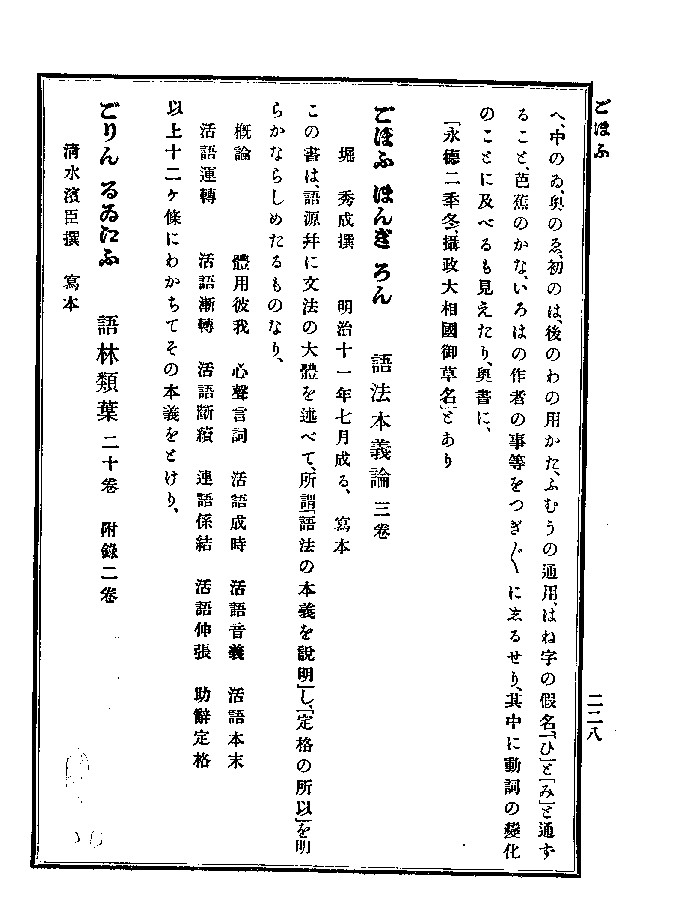 ごほふ
二二八
へ、中のゐ、奥のゑ、初のは、後のわの用かた、ふむうの通用、はね字の假名、「ひ」と「み」と通ず
ること、芭蕉のかな、いろはの作者の事等をつぎ〴〵にゑるせり、其中に動詞の變化
のことに及べるも見えたり、奥書に、
「永德二季冬、攝政大相國御草名」とあり
ごほふ ほんぎ ろん 語法本義論 三卷
堀 秀成撰 明治十一年七月成る、 寫本
この書は、語源幷に文法の大體を述べて、所謂「語法の本義を說明」し、「定格の所以」を明
らかならしめたるものなり、
槪論 體用彼我 心聲言詞 活語成時 活語音義 活語本末
活語運轉 活語漸轉 活語斷續 連語係結 活語伸張 助辭定格
以上十二ヶ條にわかちてその本義をとけり、
ごりん るゐえふ 語林類葉 二十卷 附錄二卷
淸水濱臣撰 寫本